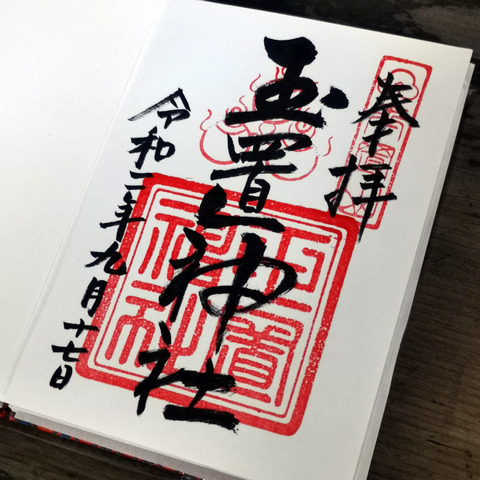 奉拝
玉置神社
令和二年九月十七日
玉置
神社